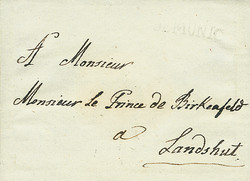 A Monsieur
Monsieur le Prince de Birkenfeld
a
Landshut.